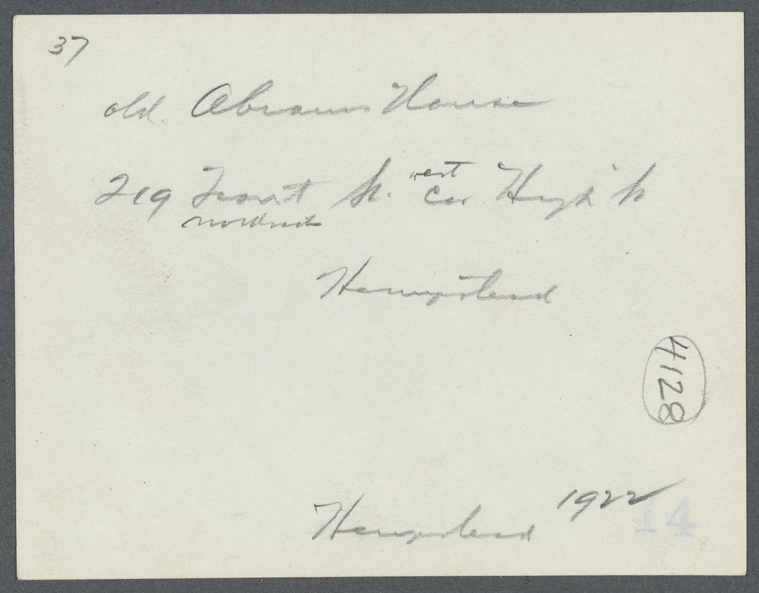 37
old Abrams House
west
219 Front St. Cor High St
northside
Hempstead
4128
Hempstead 1922
14